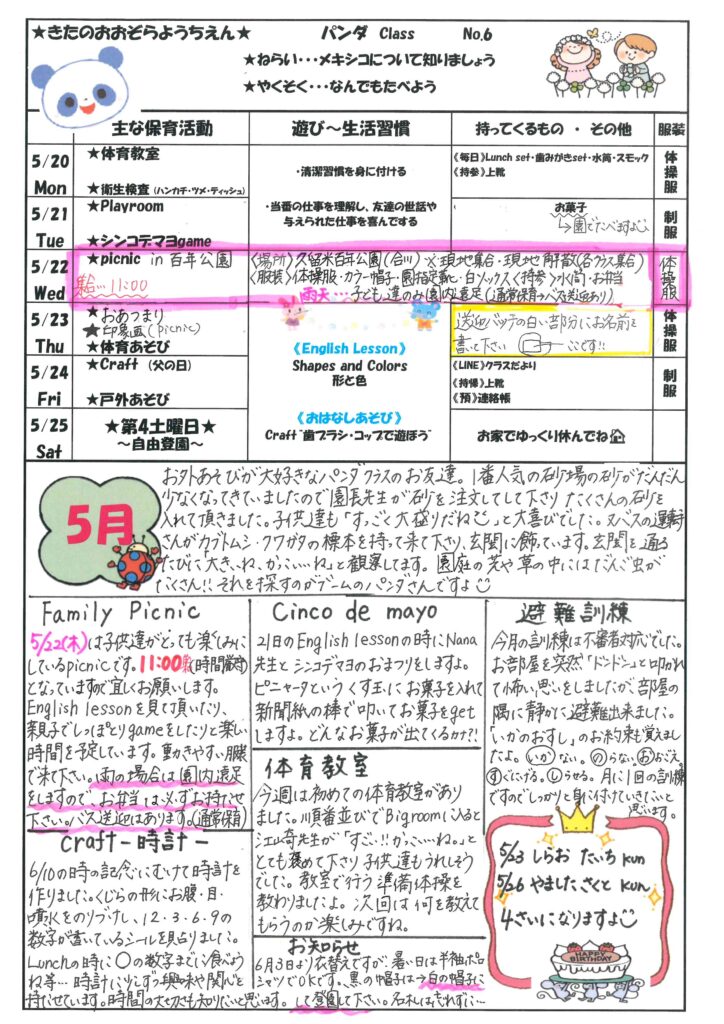 ★きたのおおぞらようちえん★ パンダ Class No.6
★ねらい・・・メキシコについて知りましょう
★やくそく・・・なんでもたべよう
主な保育活動 遊び～生活習慣 持ってくるもの ・ その他 服装
5/20 Mon
★体育教室
★衛生検査 (ハンカチ・ツメ・ティッシュ)
・清潔習慣を身に付ける
《毎日》Lunch set・歯みがきset・水筒・スモック
《持参》上靴
体操服
5/21 Tue
★Playroom
★シンコデマヨgame
・当番の仕事を理解し、友達の世話や
与えられた仕事を喜んでする
お菓子
↳園でたべますよ
制服
5/22 Wed
★picnic in 百年公園
集合…11:00
〈場所〉久留米百年公園(合川) ※現地集合・現地解散(各クラス集合)
〈服装〉体操服・カラー帽子・園指定靴・白ソックス〈持参〉水筒・お弁当
雨天…子ども達のみ園内遠足(通常保育→バス送迎あり)
体操服
5/23 Thu
★おあつまり
★印象画(picnic)
★体育あそび
《English Lesson》
Shapes and Colors
形と色
送迎バッヂの白い部分にお名前を
書いて下さい ここです!!
体操服
5/24 Fri
★Craft (父の日)
★戸外あそび
《LINE》クラスだより
《持帰》上靴
《預》連絡帳
制服
5/25 Sat
★第4土曜日★
～自由登園～
《おはなしあそび》
Craft“歯ブラシ・コップで遊ぼう”
お家でゆっくり休んでね
5月
お外あそびが大好きなパンダクラスのお友達。1番人気の砂場の砂がだんだん
少なくなってきていましたので園長先生が砂を注文してして下さり たくさんの砂を
入れて頂きました。子供達も「すっごく大盛りだね」と大喜びでした。又バスの運転手
さんがカブトムシ・クワガタの標本を持って来て下さり、玄関に飾っています。玄関を通る
たびに「大きいね、かっこいいね」と観察します。園庭の芝や草の中にはだんご虫が
たくさん!!それを探すのがブームのパンダさんですよ
Family Picnic
5/22(木)は子供達がとっても楽しみに
しているpicnicです。11:00集合(時間厳守)
となっていますので宜しくお願いします。
English lessonを見て頂いたり、
親子でしっぽとりgameをしたりと楽しい
時間を予定しています。動きやすい服装
で来て下さい。雨の場合は園内遠足
をしますので、お弁当は必ずお持たせ
下さい。バス送迎はあります。(通常保育)
Craft-時計-
6/10の時の記念にむけて時計を
作りました。くじらの形にお腹・目・
噴水をのりづけし、12・3・6・9の
数字が書いているシールを貼りました。
Lunchの時に○の数字までに食べよう
ね等…時計に少しずつ興味や関心を
持たせています。時間の大切さも知りたいと思います。
Cinco de mayo
21日のEnglish lessonの時にNana
先生とシンコデマヨのおまつりをしますよ。
ピニャータというくす玉にお菓子を入れて
新聞紙の棒で叩いてお菓子をget
しますよ。どんなお菓子が出てくるかな?!
体育教室
今週は初めての体育教室があり
ました。順番並びでBigroomに入ると
江崎先生が「すご～い!!かっこいいね。」と
とても褒めて下さり 子供達もうれしそう
でした。教室で行う準備体操を
教わりましたよ。次回は何を教えて
もらうのか楽しみですね。
お知らせ
6月3日より衣替えですが、暑い日は半袖ポロ
シャツでOKです。黒の帽子は→白の帽子に
して登園して下さい。名札はわすれずに…
避難訓練
今月の訓練は不審者対応でした。
お部屋を突然「ドンドン」と叩かれ
て怖い思いをしましたが、部屋の
隅に静かに避難出来ました。
「いかのおすし」のお約束も覚えまし
たよ。いかない。のらない。おおごえ。
すぐにげる。しらせる。月に1回の訓練
ですのでしっかりと身に付けていきたいと
思います。
5/23 しらお たいち kun
5/26 やました さくと kun
4さいになりますよ
HAPPY BIRTHDAY